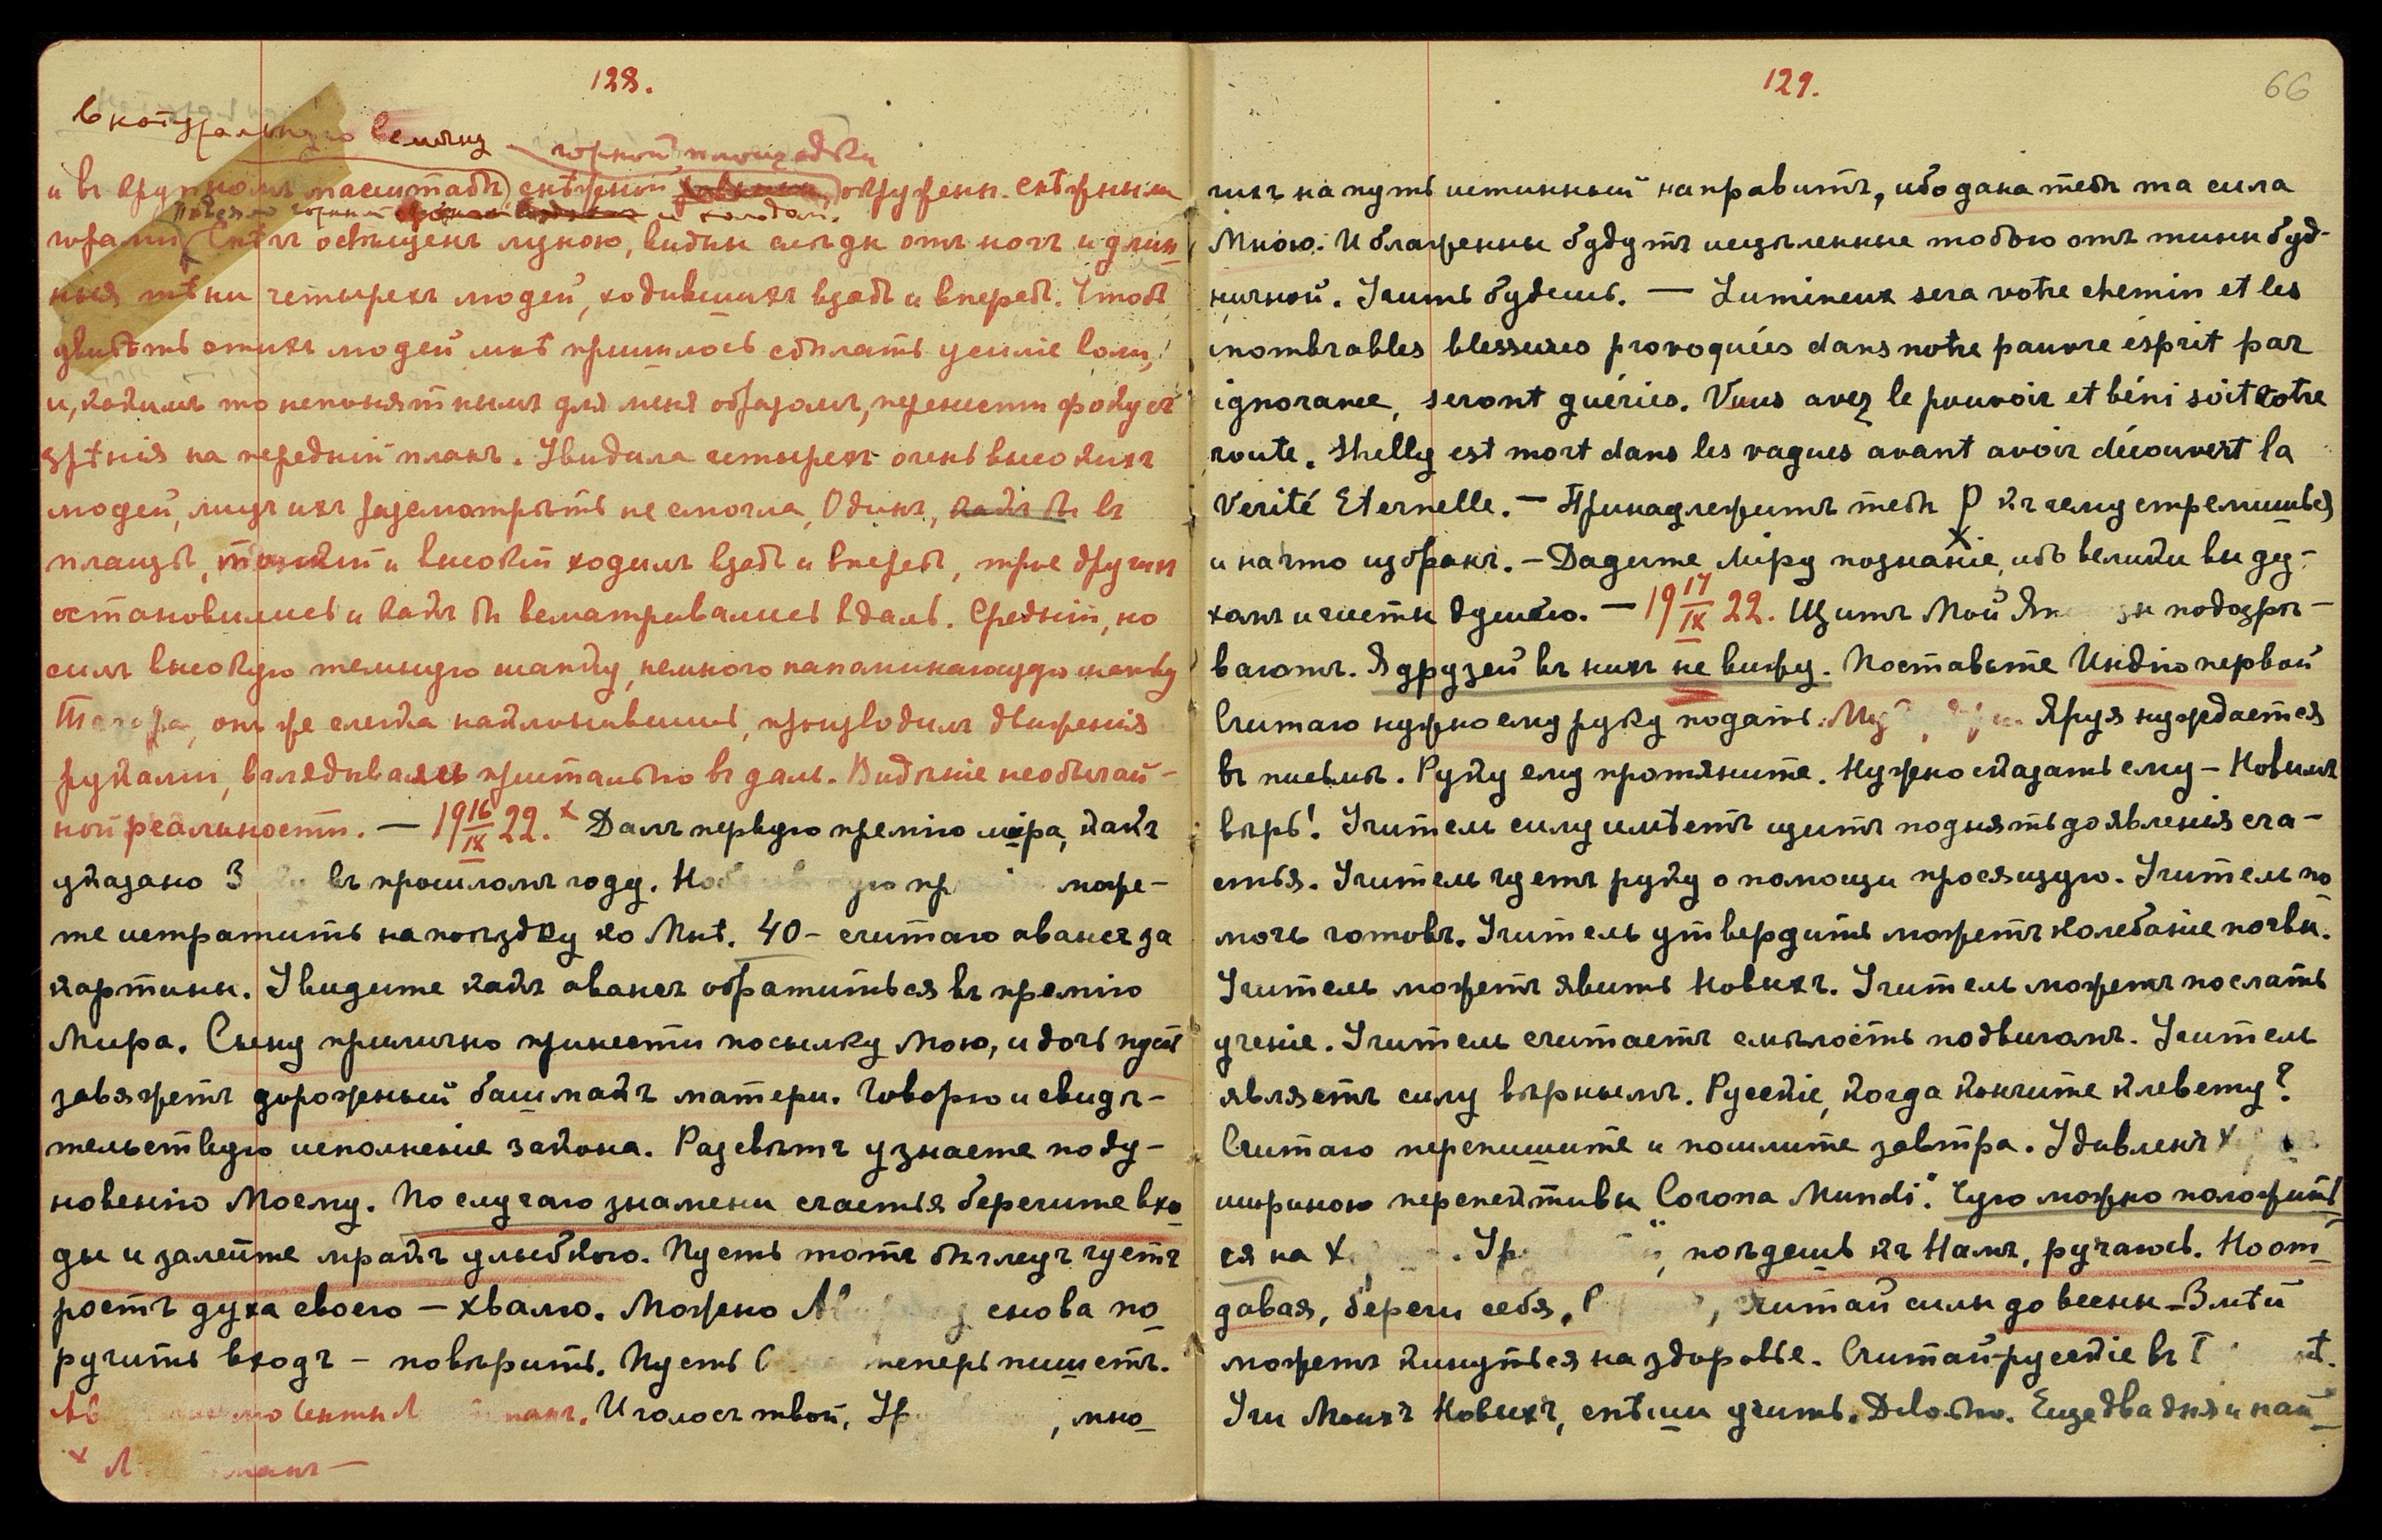 128.
въ натуральную величину
горной площадки
и въ крупномъ масштабѣ) снѣжной окружены. снѣжными
повеяло горнымъ и холодом.
горами. Снѣгъ освѣщенъ луною, видны слѣды отъ ногъ и длин-
ныя тѣни четырехъ людей, ходившихъ взадъ и впередъ. Чтобъ
увидѣть этихъ людей мнѣ пришлось сдѣлать усиліе воли,
и, какимъ то непонятнымъ для меня образомъ, перенести фокусъ
зрѣнія на передній планъ. Увидала четырехъ очень высокихъ
людей, лицъ ихъ разсмотрѣть не смогла, Одинъ, какъ бы въ
плащѣ, тонкій и высокій ходилъ взадъ и впередъ, трое другихъ
остановились и какъ бы всматривались вдаль. Средній, но
силъ высокую темную шапку, немного напоминающую шапку
Тагора, онъ же слегка наклонившись, производилъ движенія
руками, вглядываясь пристально въ даль. Видѣніе необычай-
ной реальности. — 19 16/IX 22. x Далъ первую премію міра, какъ
указано З въ прошломъ году. може-
те истратить на поѣздку ко Мнѣ. 40 – считаю авансъ за
картины. Увидите какъ авансъ обратиться въ премію
Мира. Сыну прилично принести посылку Мою, и дочь пусть
завяжетъ дорожный башмакъ матери. Говорю и свидѣ-
тельствую исполненіе закона. Разсвѣтъ узнаете по ду-
новенію Моему. По случаю знамени счастья берегите вхо-
ды и залейте мракъ улыбкою. Пусть тотъ бѣглецъ чуетъ
ростъ духа своего — хвалю. Можно снова по-
ручить входъ – повѣрить. Пусть теперь пишетъ.
И голосъ твой, Ур , мно-
x Л
129.
66
гихъ на путь истинный направитъ, ибо дана тебѣ та сила
Мною. И блаженны будутъ исцѣленные тобою отъ тины буд-
ничной. Учить будешь. — Lumineux sera votre chemin et les
inombrables blessures provoquées dans notre pauvre ésprit par
ignorance, seront guéries. Vous avez le pouvoir et béni soit votre
route. Shelly est mort dans les vagues avant avoir découvert la
Verité Eternelle. — Принадлежитъ тебѣ р къ чему стремишься
и на что избранъ. – Дадите Міру познаніе, ибо велики вы ду-
хомъ и чисты душою. — 19 17/IX 22. Щитъ Мой подозрѣ-
ваютъ. Я друзей въ нихъ не вижу. Поставьте Индію первой
Считаю нужно ему руку подать. Яруя нуждается
въ письмѣ. Руку ему протяните. Нужно сказать ему – Новымъ
вѣрь! Учитель силу имѣетъ щитъ поднять до явленія сча-
стья. Учитель чуетъ руку о помощи просящую. Учитель по
мочь готовъ. Учитель утвердить можетъ колебаніе почвы.
Учитель можетъ явить Новыхъ. Учитель можетъ послать
ученіе. Учитель считаетъ смѣлость подвигомъ. Учитель
являетъ силу вѣрнымъ. Русскіе, когда кончите клевету?
Считаю перепишите и пошлите завтра. Удивленъ
шириною перспективы Corona Mundi". Чую можно положить
ся на Х . Ур , поѣдешь къ Намъ, ручаюсь. Но от-
давая, береги себя, Р , считай силы до весны – Змѣй
можетъ кинуться на здоровье. Считай русскіе въ
Учи Моихъ Новыхъ, спѣши учить. Довольно. Еще два дня и най-